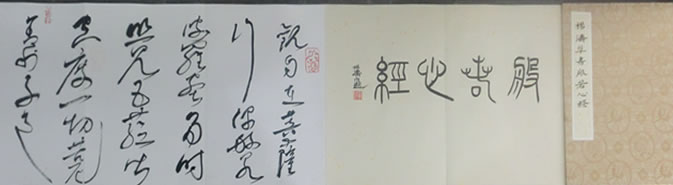 楊濤草書般若心經
般若心經
觀自在菩薩
行深般若
波羅蜜多時
照見五蘊皆
空度一切苦厄
舍利子色